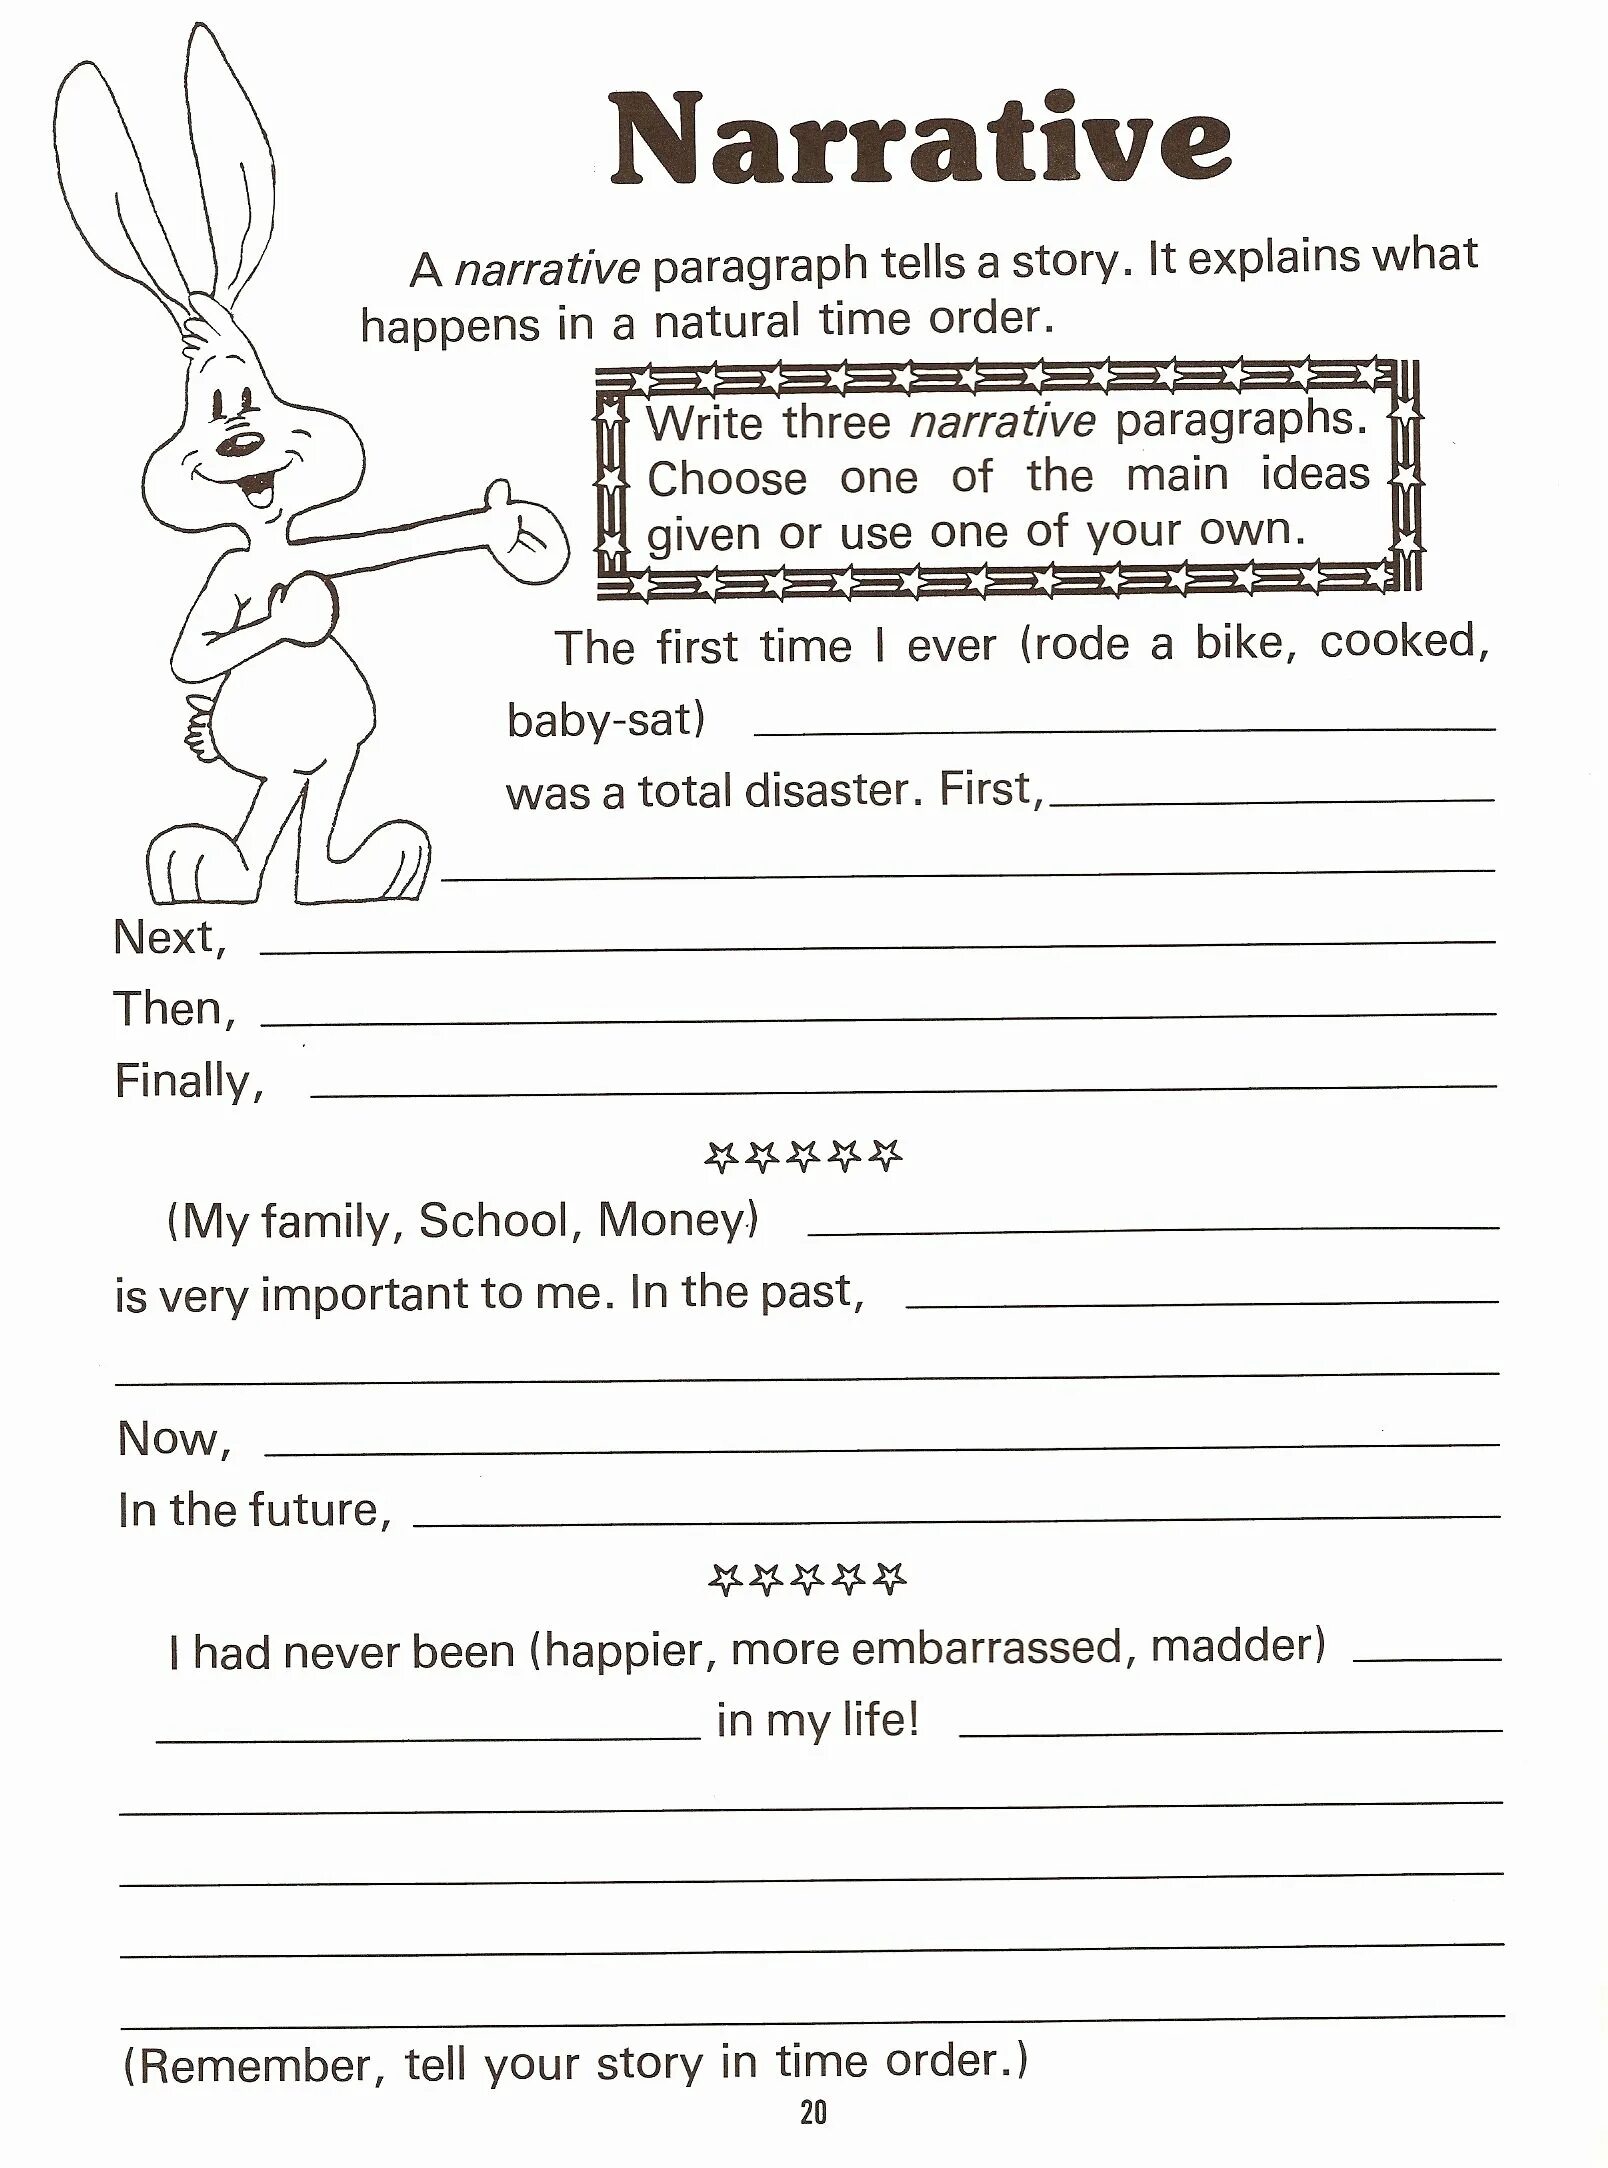 Narrative
A narrative paragraph tells a story. It explains what
happens in a natural time order.
Write three narrative paragraphs.
Choose one of the main ideas
given or use one of your own.
The first time I ever (rode a bike, cooked,
baby-sat)
was a total disaster. First,
Next,
Then,
Finally,
(My family, School, Money)
is very important to me. In the past,
Now,
In the future,
I had never been (happier, more embarrassed, madder)
in my life!
(Remember, tell your story in time order.)
20